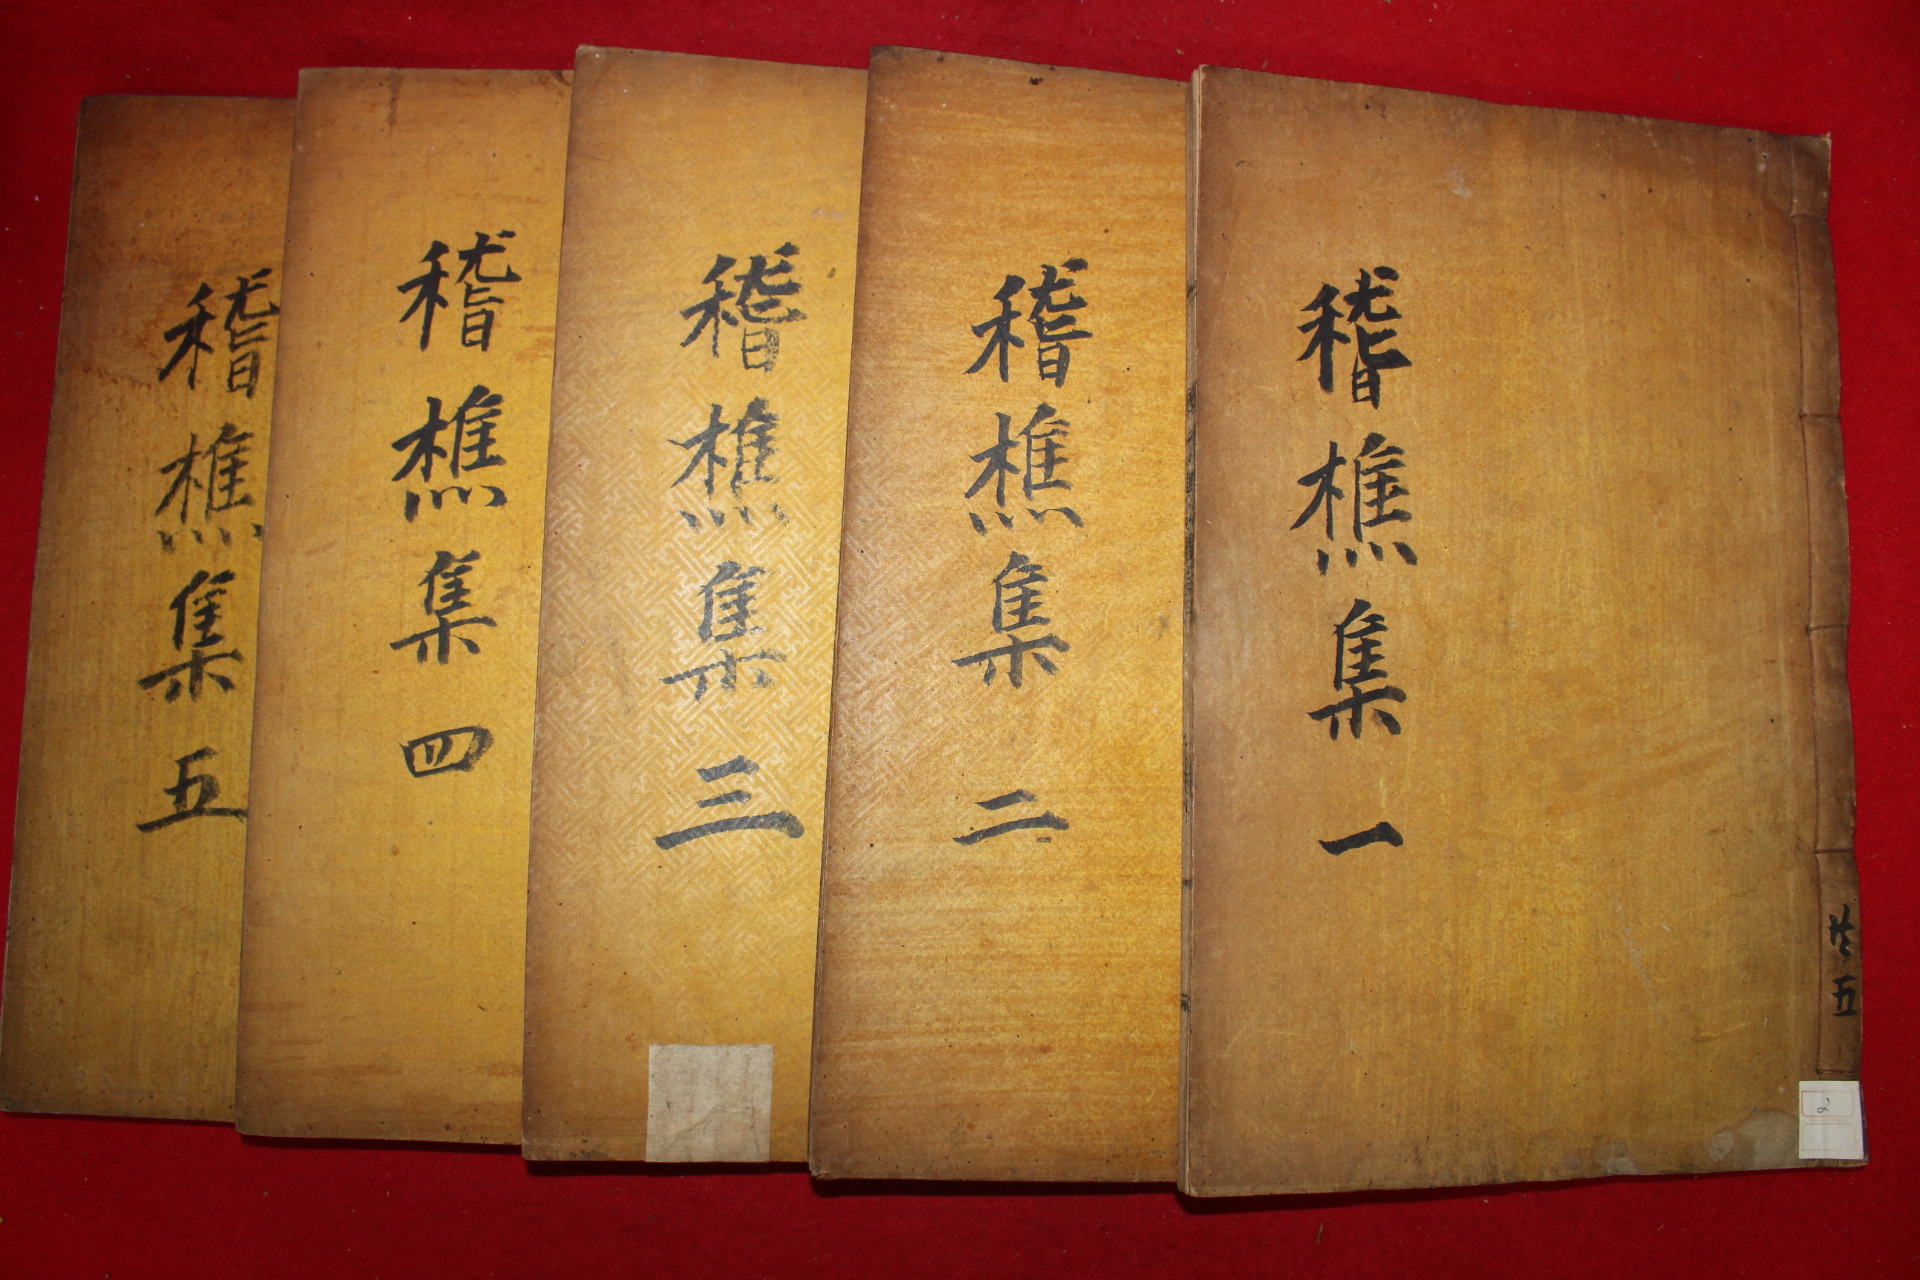 稽樵集 一
共五
2
稽樵集 二
稽樵集 三
稽樵集 四
稽樵集 五